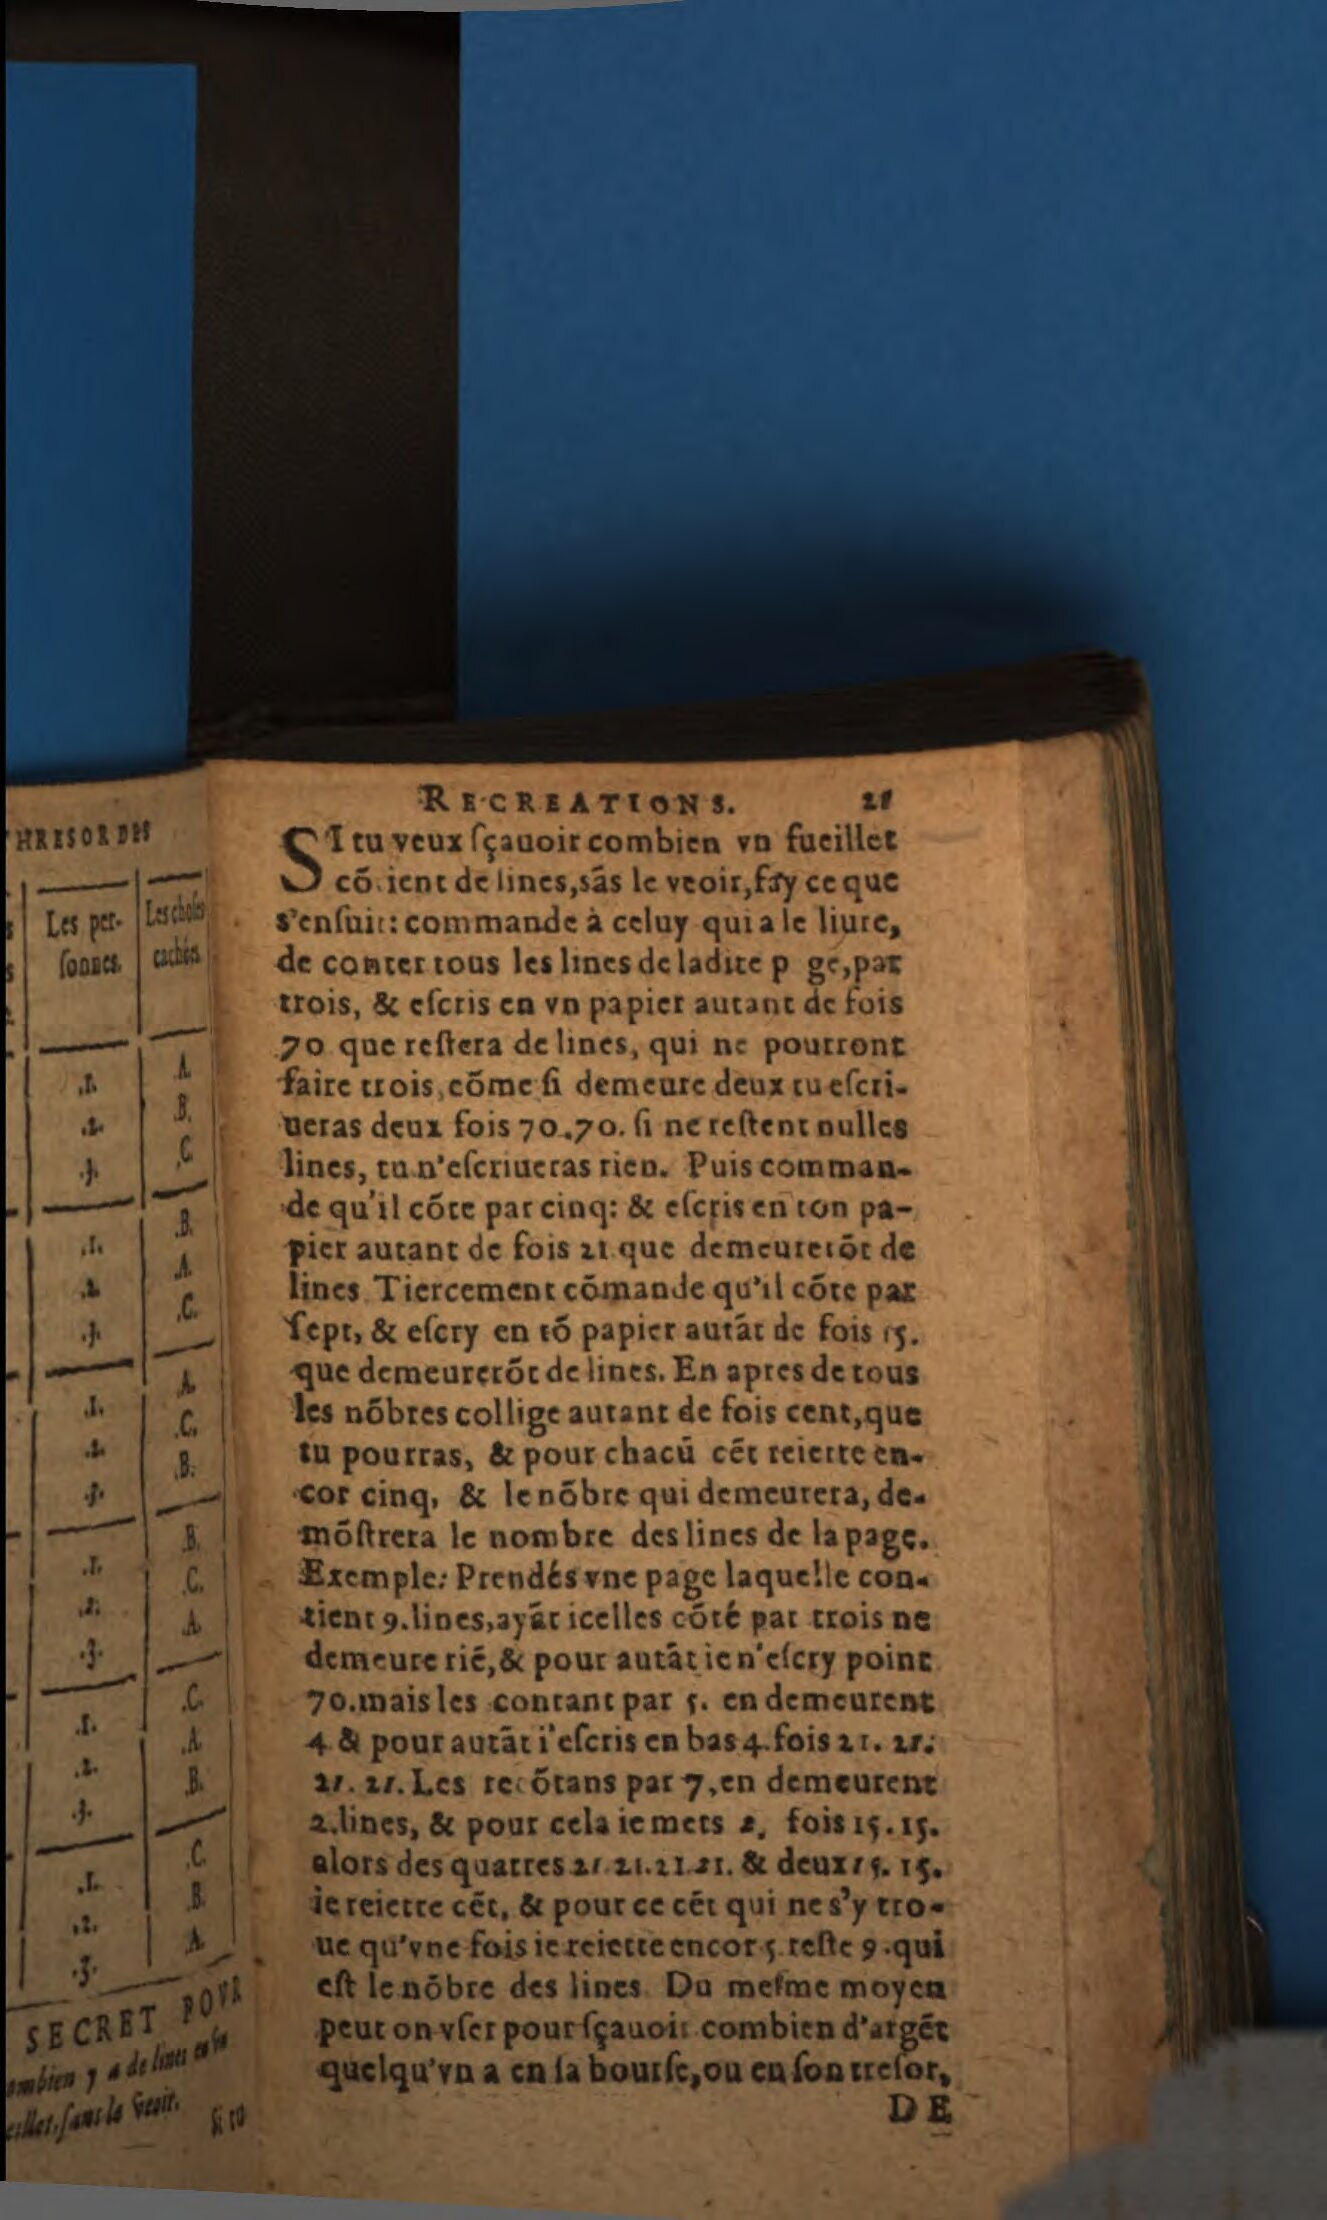 HRESOR DES
Les per-
sonnes.
Les choses
cachées
.1. A.
.2. B.
.3. C
.1. B.
.2. A.
.3. C.
.1. A.
.2. C.
.3. B.
.1. B.
.2. C.
.3. A.
.1. C.
.2. A.
.3. B.
.1. C
.2. B.
.3. A.
SECRET POVR
ombien y a de lines en vn
eillet, sans le veoir.
Si tu
RECREATIONS. 21
SI tu veux sçauoir combien vn fueillet
cō ient de lines, sās le veoir, fay ce que
s'ensuit: commande à celuy qui a le liure,
de conter tous les lines de ladite p ge, par
trois, & escris en vn papier autant de fois
70 que restera de lines, qui ne pourront
faire trois, cōme si demeure deux tu escri-
ueras deux fois 70.70. si ne restent nulles
lines, tu n'escriueras rien. Puis comman-
de qu'il cōte par cinq: & escris en ton pa-
pier autant de fois 21 que demeurerōt de
lines Tiercement cōmande qu'il cōte par
sept, & escry en tō papier autāt de fois 15.
que demeurerōt de lines. En apres de tous
les nōbres collige autant de fois cent, que
tu pourras, & pour chacū cēt reiette en-
cor cinq, & le nōbre qui demeurera, de-
mōstrera le nombre des lines de la page.
Exemple: Prendés vne page laquelle con-
tient 9. lines, ayāt icelles cōté par trois ne
demeure riē, & pour autāt ie n'escry point
70. mais les contant par 5. en demeurent
4 & pour autāt i'escris en bas 4. fois 21. 21.
21. 21. Les recōtans par 7, en demeurent
2. lines, & pour cela ie mets 2. fois 15. 15.
alors des quatres 21. 21. 21. 21. & deux 15. 15.
ie reiette cēt, & pour ce cēt qui ne s'y tro-
ue qu'vne fois ie reiette encor 5. reste 9. qui
est le nōbre des lines. Du mesme moyen
peut on vser pour sçauoir combien d'argēt
quelqu'vn a en sa bourse, ou en son tresor,
DE